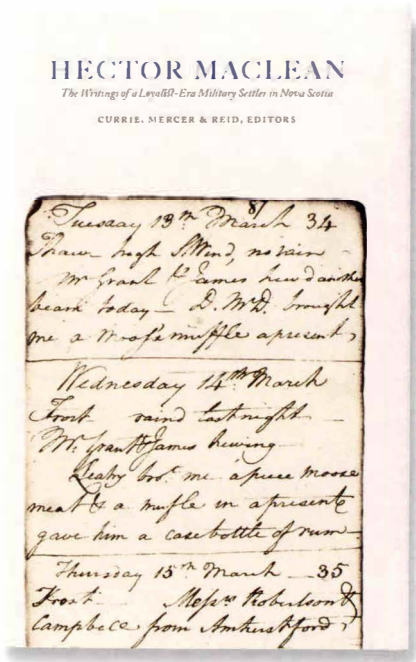 HECTOR MACLEAN
The Writings of a Loyalist-Era Military Settler in Nova Scotia
CURRIE, MERCER & REID, EDITORS
Tuesday 13th March 34
Thaw high S. Wind, no rain
Mr Grant & James hew'd another
beam today — D. McD. brought
me a Moose muffle a present,
Wednesday 14th March
Frost raind last night
Mr. Grant & James hewing
Leahy bro.t me a piece moose
meat & a mufle in a presente
gave him a case bottle of rum
Thursday 15th March 35
Frost Messrs Robertson &
Campbell from Amherstford,